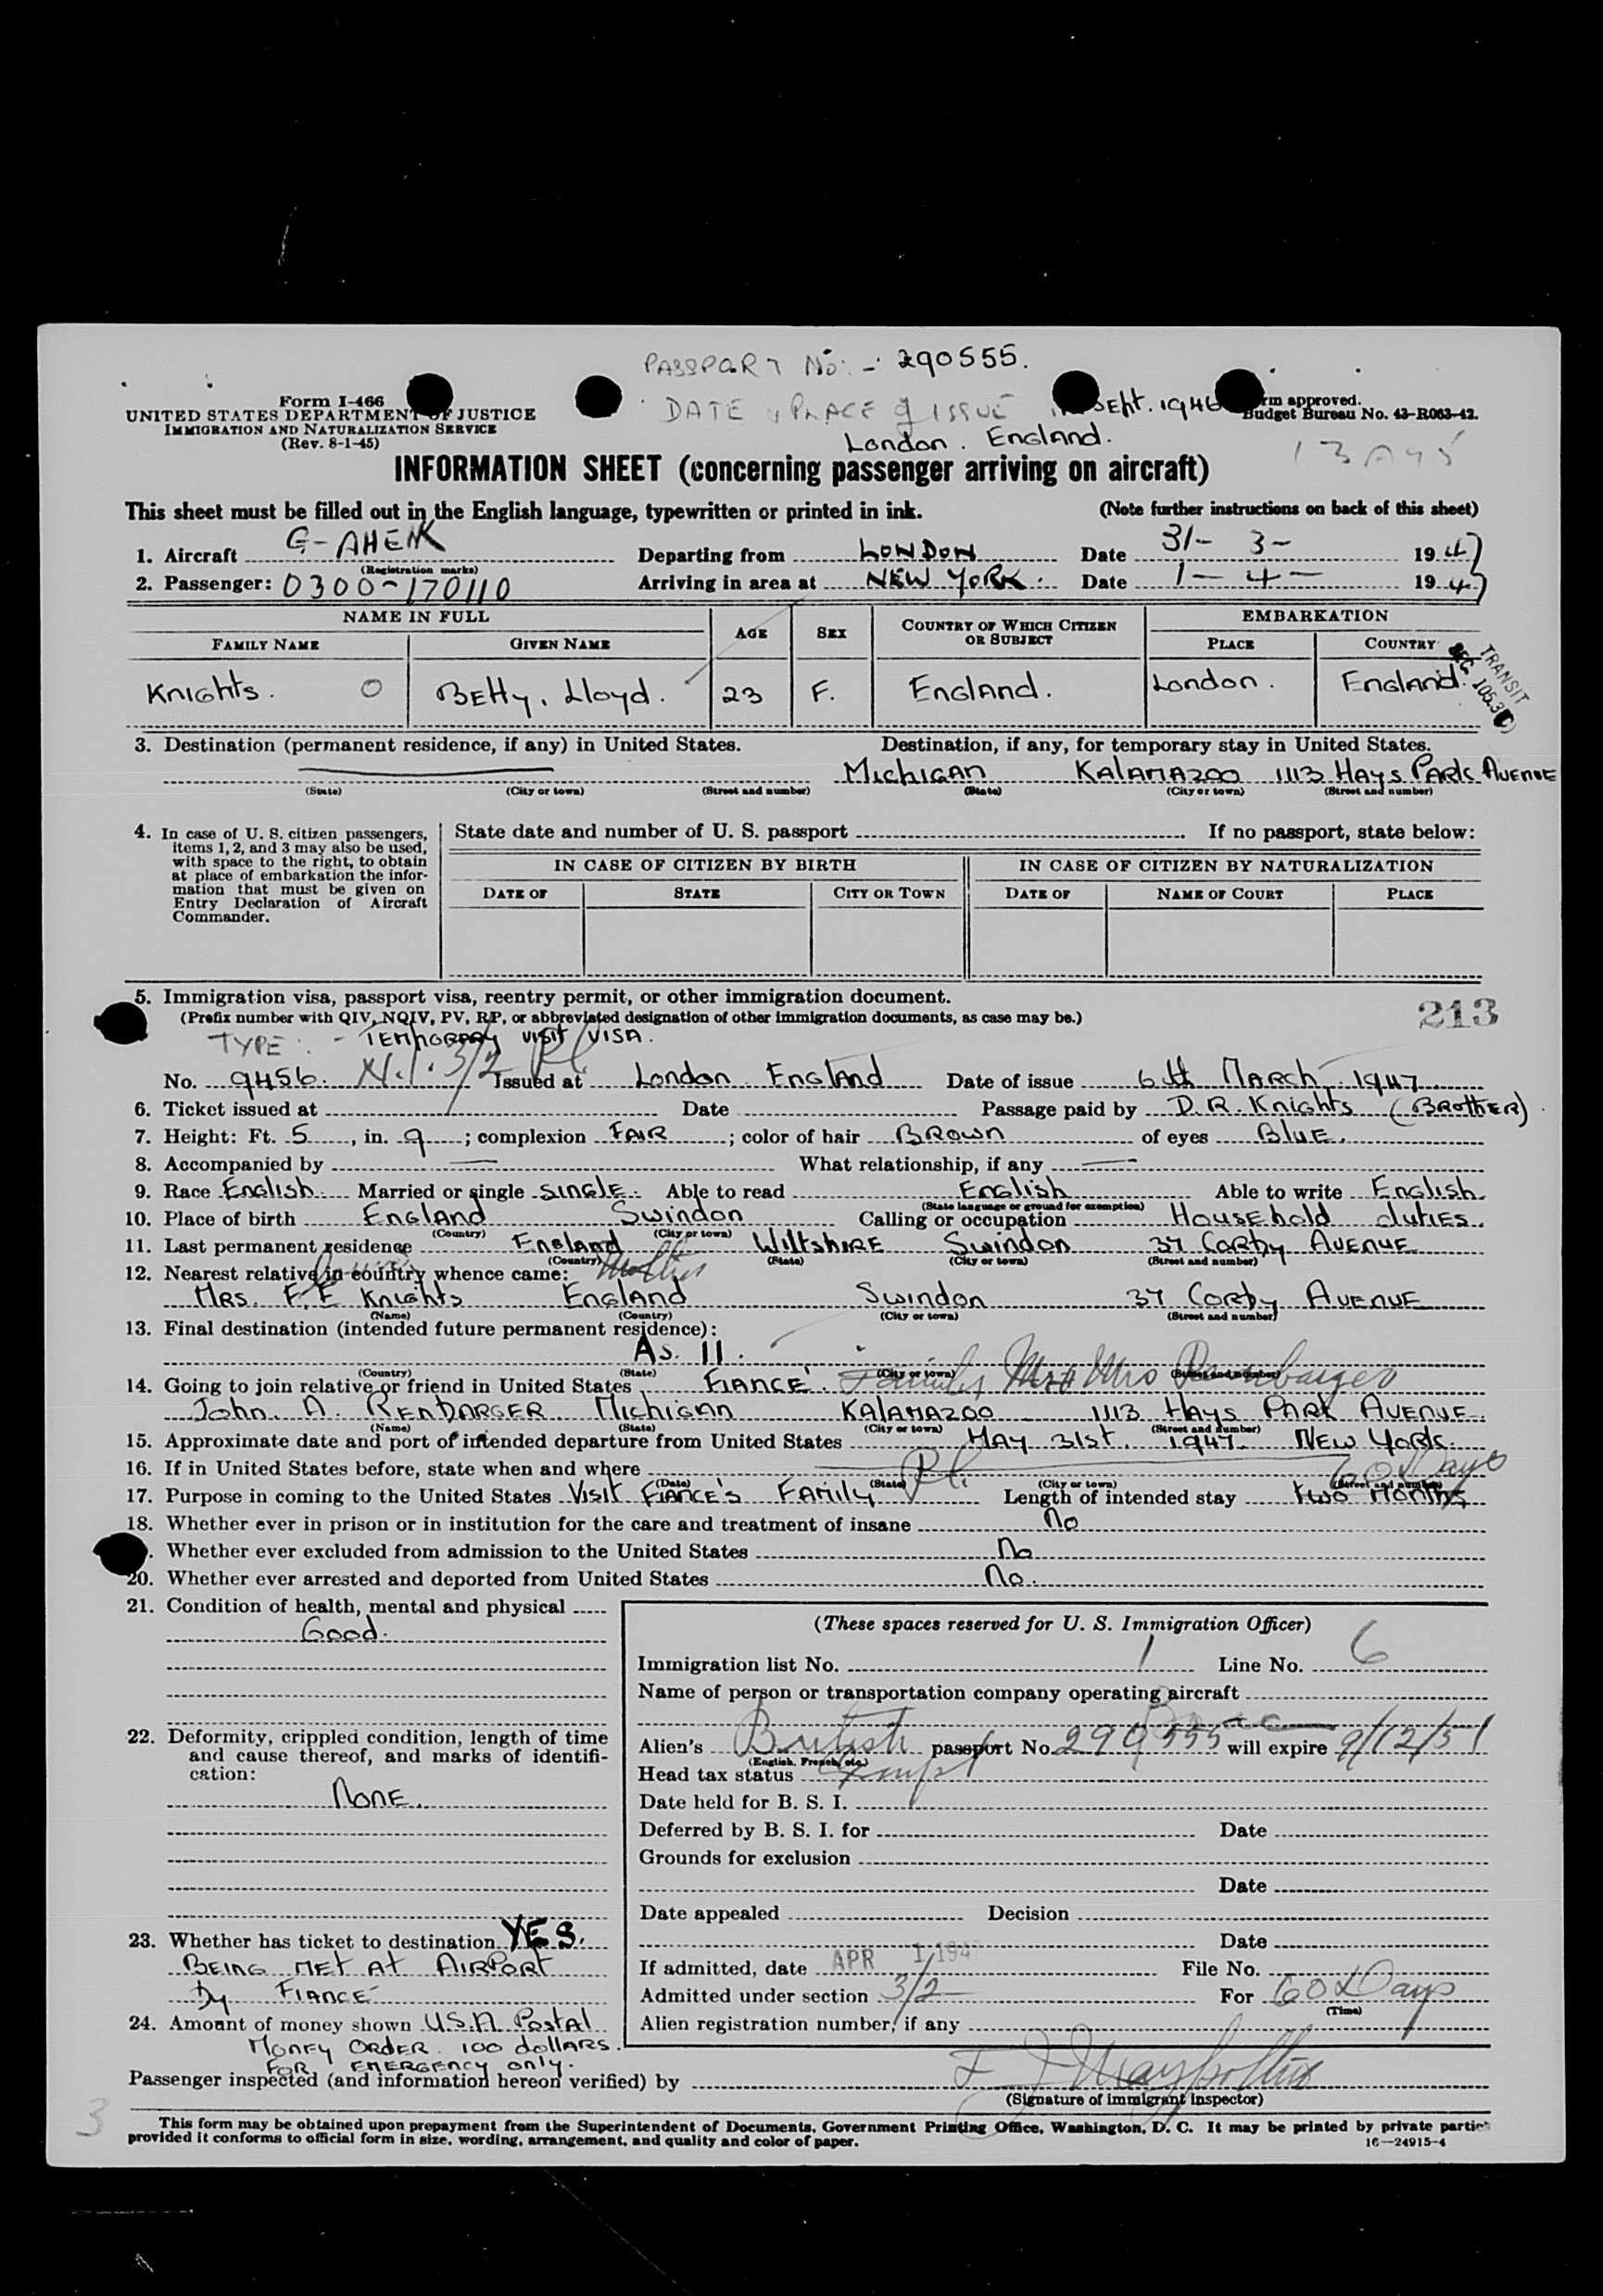 PASSPORT No:- 290555.
Form I-466
UNITED STATES DEPARTMENT OF JUSTICE
IMMIGRATION AND NATURALIZATION SERVICE
(Rev. 8-1-45)
DATE & PLACE of ISSUE Sept. 1946
London. England.
rm approved.
Budget Bureau No. 43-R063-42.
INFORMATION SHEET (concerning passenger arriving on aircraft)
This sheet must be filled out in the English language, typewritten or printed in ink. (Note further instructions on back of this sheet)
1. Aircraft G-AHEN Departing from LONDON Date 31-3- 1947
(Registration marks)
2. Passenger: 0300-170110 Arriving in area at NEW YORK. Date 1-4- 1947
NAME IN FULL AGE SEX COUNTRY OF WHICH CITIZEN OR SUBJECT EMBARKATION
FAMILY NAME GIVEN NAME PLACE COUNTRY
Knights. O Betty, Lloyd. 23 F. England. London. England.
TRANSIT
SEC 105.3
3. Destination (permanent residence, if any) in United States. Destination, if any, for temporary stay in United States.
Michigan Kalamazoo 1113 Hays Park Avenue
(State) (City or town) (Street and number) (State) (City or town) (Street and number)
4. In case of U. S. citizen passengers, items 1, 2, and 3 may also be used, with space to the right, to obtain at place of embarkation the information that must be given on Entry Declaration of Aircraft Commander.
State date and number of U. S. passport If no passport, state below:
IN CASE OF CITIZEN BY BIRTH IN CASE OF CITIZEN BY NATURALIZATION
DATE OF STATE CITY OR TOWN DATE OF NAME OF COURT PLACE
5. Immigration visa, passport visa, reentry permit, or other immigration document.
(Prefix number with QIV, NQIV, PV, RP, or abbreviated designation of other immigration documents, as case may be.)
213
TYPE: - Temporary visit visa.
No. 9456. 3/2 Issued at London England Date of issue 6th March, 1947
6. Ticket issued at Date Passage paid by D.R. Knights (Brother)
7. Height: Ft. 5, in. 9; complexion Fair; color of hair Brown of eyes Blue.
8. Accompanied by — What relationship, if any —
9. Race English Married or single single. Able to read English Able to write English.
(State language or ground for exemption)
10. Place of birth England Swindon Calling or occupation Household duties.
(Country) (City or town)
11. Last permanent residence England Wiltshire Swindon 37 Corby Avenue
(Country) (State) (City or town) (Street and number)
12. Nearest relative in country whence came: Mother
Mrs. F.E Knights England Swindon 37 Corby Avenue
(Name) (Country) (City or town) (Street and number)
13. Final destination (intended future permanent residence):
As. 11.
(Country) (State) (City or town) (Street and number)
14. Going to join relative or friend in United States Fiancé. Family Mr & Mrs Rembarger
John. A. Rembarger Michigan Kalamazoo 1113 Hays Park Avenue.
(Name) (State) (City or town) (Street and number)
15. Approximate date and port of intended departure from United States May 31st. 1947. New York.
16. If in United States before, state when and where
(Date) (State) (City or town) (Street and number)
60 Days
17. Purpose in coming to the United States Visit Fiance's Family Length of intended stay two months
18. Whether ever in prison or in institution for the care and treatment of insane No
. Whether ever excluded from admission to the United States No
20. Whether ever arrested and deported from United States No.
21. Condition of health, mental and physical
Good.
22. Deformity, crippled condition, length of time and cause thereof, and marks of identification:
None.
23. Whether has ticket to destination YES.
Being met at Airport
by Fiancé
24. Amount of money shown U.S.A Postal
Money Order. 100 dollars.
For emergency only.
(These spaces reserved for U. S. Immigration Officer)
Immigration list No. 1 Line No. 6
Name of person or transportation company operating aircraft
Boac
Alien's British passport No. 290555 will expire 9/12/51
(English, French, etc.)
Head tax status Exempt
Date held for B. S. I.
Deferred by B. S. I. for Date
Grounds for exclusion
Date
Date appealed Decision
Date
If admitted, date APR 1 194 File No.
Admitted under section 3/2 For 60 Days
(Time)
Alien registration number, if any
Passenger inspected (and information hereon verified) by
(Signature of immigrant inspector)
3
This form may be obtained upon prepayment from the Superintendent of Documents, Government Printing Office, Washington, D. C. It may be printed by private parties
provided it conforms to official form in size, wording, arrangement, and quality and color of paper. 16—24915-4